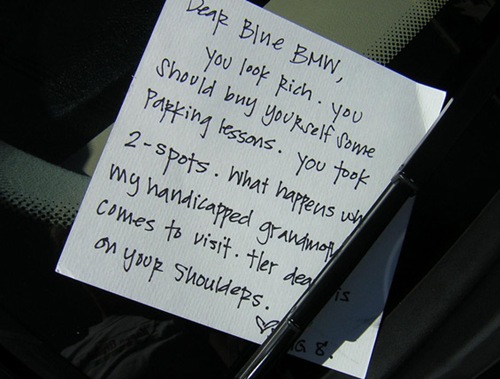 Dear Blue BMW,
you look rich. you
should buy yourself some
parking lessons. you took
2-spots. What happens
my handicapped
comes to visit. Her
is
on your shoulders.
G 8.